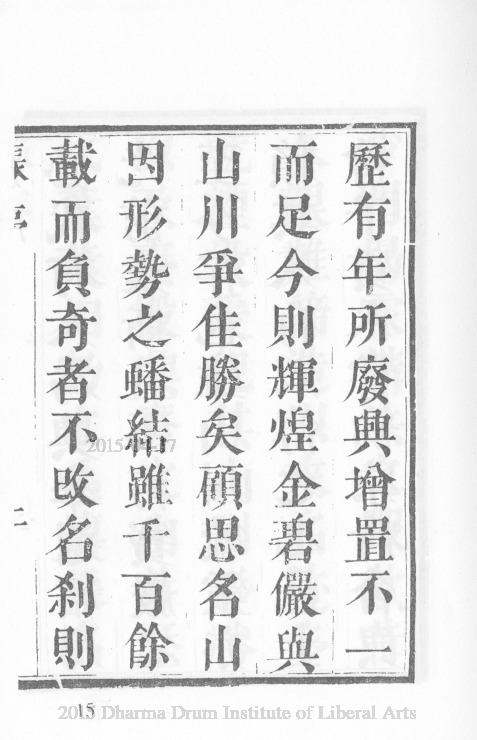 歷有年所廢興增置不一
而足今則輝煌金碧儼與
山川爭佳勝矣顧思名山
因形勢之蟠結雖千百餘
載而負奇者不改名剎則
2015
15
2015 Dharma Drum Institute of Liberal Arts